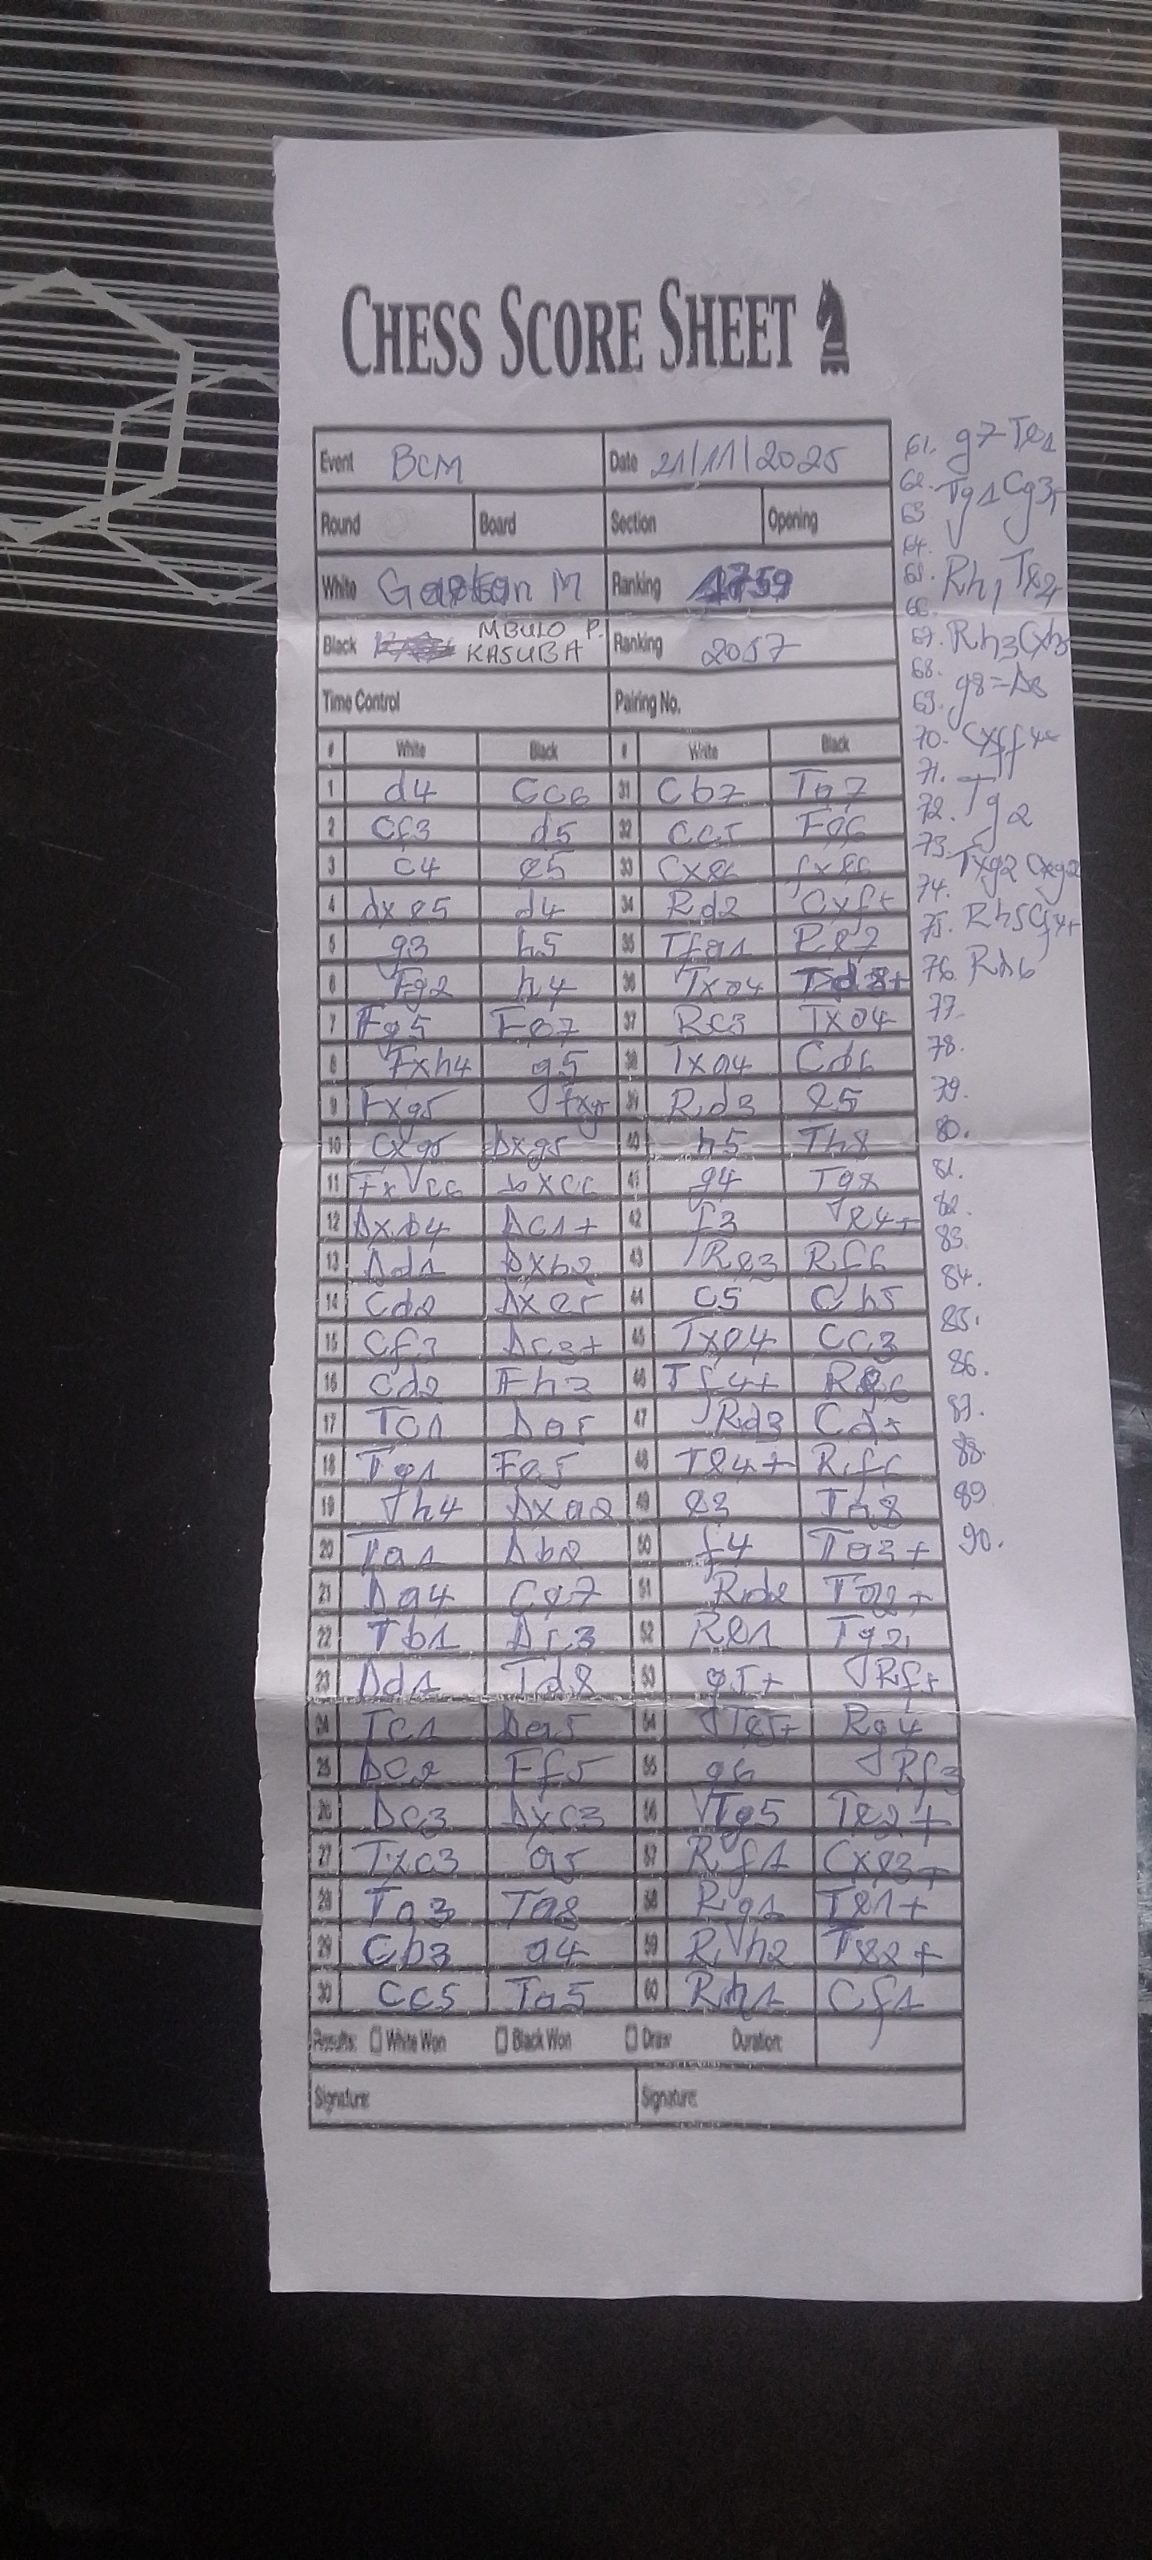 CHESS SCORE SHEET
Event BCM Date 21/11/2025
Round Board Section Opening
White M Ranking 1759
Black MBULO P. KASUBA Ranking 2057
Time Control Pairing No.
# White Black # White Black
1 d4 Cc6 31 Cb7 Ta7
2 Cf3 d5 32 Cc5
3 c4 e5 33 Cxe6 fxe6
4 dxe5 d4 34 Rd2 Cxf+
5 g3 h5 35 Tfa1 Re7
6 Fg2 h4 36 Txa4 Td8+
7 Fg5 Fe7 37 Rc3 Txa4
8 Fxh4 g5 38 Txa4 Cd6
9 Fxg5 fxg5 39 Rd3 e5
10 Cxg5 Dxg5 40 h5 Th8
11 Fxcc bxcc 41 g4 Tg8
12 Dxd4 Dc1+ 42 f3 e4+
13 Dd1 Dxb2 43 Re3 Rf6
14 Cd2 Dxe5 44 c5 Ch5
15 Cf3 Dc3+ 45 Txe4 Cc3
16 Cd2 Fh3 46 Tf4+ Re6
17 Tc1 Da5 47 Rd3 Cd5
18 Tg1 Fe5 48 Te4+ Rf6
19 h4 Dxa2 49 e3 Ta8
20 Ta1 Db2 50 f4 Ta3+
21 Da4 Ce7 51 Rd2 Ta2+
22 Tb1 Dc3 52 Re1 Tg2
23 Dd1 Td8 53 g5+ Rf5
24 Tc1 Da5 54 Te5+ Rg4
25 Dc2 Ff5 55 g6 Rf3
26 Dc3 Dxc3 56 Tg5 Te2+
27 Txc3 a5 57 Rf1 Cxe3+
28 Ta3 Ta8 58 Rg1 Te1+
29 Cb3 a4 59 Rh2 Te2+
30 Cc5 Ta5 60 Rh1 Cf1
Results: White Won Black Won Draw Duration:
Signature: Signature:
61. g7 Te1
62. Tg1 Cg3+
63
64.
65. Rh1 Te4
66.
67. Rh3 Cxh5
68. g8=D
69.
70. Cxf4+
71.
72. Tg2
73. Txg2 Cxg2
74.
75. Rh5 Cf4+
76. Rh6
77.
78.
79.
80.
81.
82.
83.
84.
85.
86.
87.
88.
89
90.